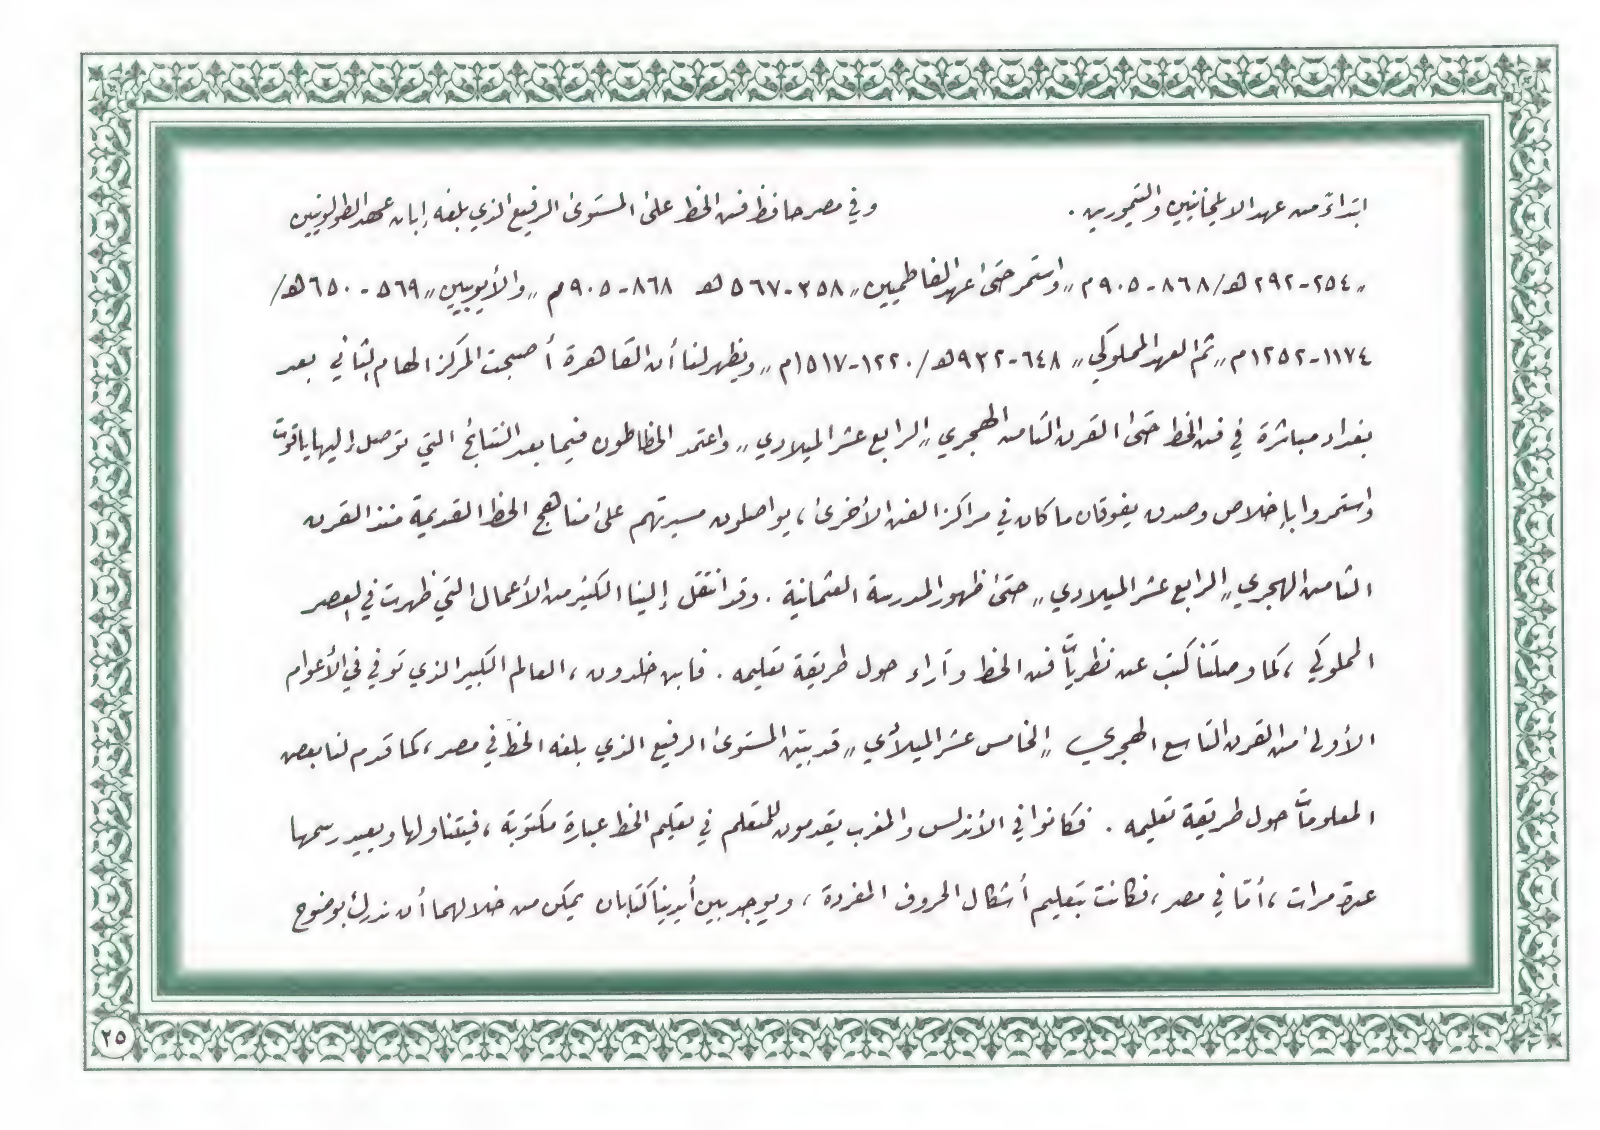 ابتداءً من عهد الايلخانيين والتيموريين .  وفي مصر حافظ فن الخط على المستوى الرفيع الذي بلغه إبان عهد الطولونيين
„ ٢٥٤-٢٩٢هـ/٨٦٨-٩٠٥م „ واستمر حتى عهد الفاطميين „ ٣٥٨-٥٦٧هـ ٨٦٨-٩٠٥م „ والأيوبيين „ ٥٦٩-٦٥٠هـ/
١١٧٤-١٢٥٢م „ ثم العهد المملوكي „ ٦٤٨-٩٣٢هـ/١٢٢٠-١٥١٧م „ ويظهر لنا أن القاهرة أصبحت المركز الهام الثاني بعد
بغداد مباشرة في فن الخط حتى القرن الثامن الهجري „ الرابع عشر الميلادي „ واعتمد الخطاطون فيما بعد النتائج التي توصل إليها ياقوت
واستمروا بإخلاص وصدق يفوقان ما كان في مراكز الفن الأخرى ، يواصلون مسيرتهم على مناهج الخط القديمة منذ القرن
الثامن الهجري „ الرابع عشر الميلادي „ حتى ظهور المدرسة العثمانية . وقد انتقل إلينا الكثير من الأعمال التي ظهرت في العصر
المملوكي ، كما وصلتنا كتب عن نظريات فن الخط وآراء حول طريقة تعليمه . فابن خلدون ، العالم الكبير الذي توفي في الأعوام
الأولى من القرن التاسع الهجري „ الخامس عشر الميلادي „ قد بيّن المستوى الرفيع الذي بلغه الخط في مصر ، كما قدم لنا بعض
المعلومات حول طريقة تعليمه . فكانوا في الأندلس والمغرب يقدمون للمتعلم في تعليم الخط عبارة مكتوبة ، فيتناولها ويعيد رسمها
عدة مرات ، أمّا في مصر ، فكانت بتعليم أشكال الحروف المفردة ، ويوجد بين أيدينا كتابان يمكن من خلالهما أن ندرك بوضوح
٢٥